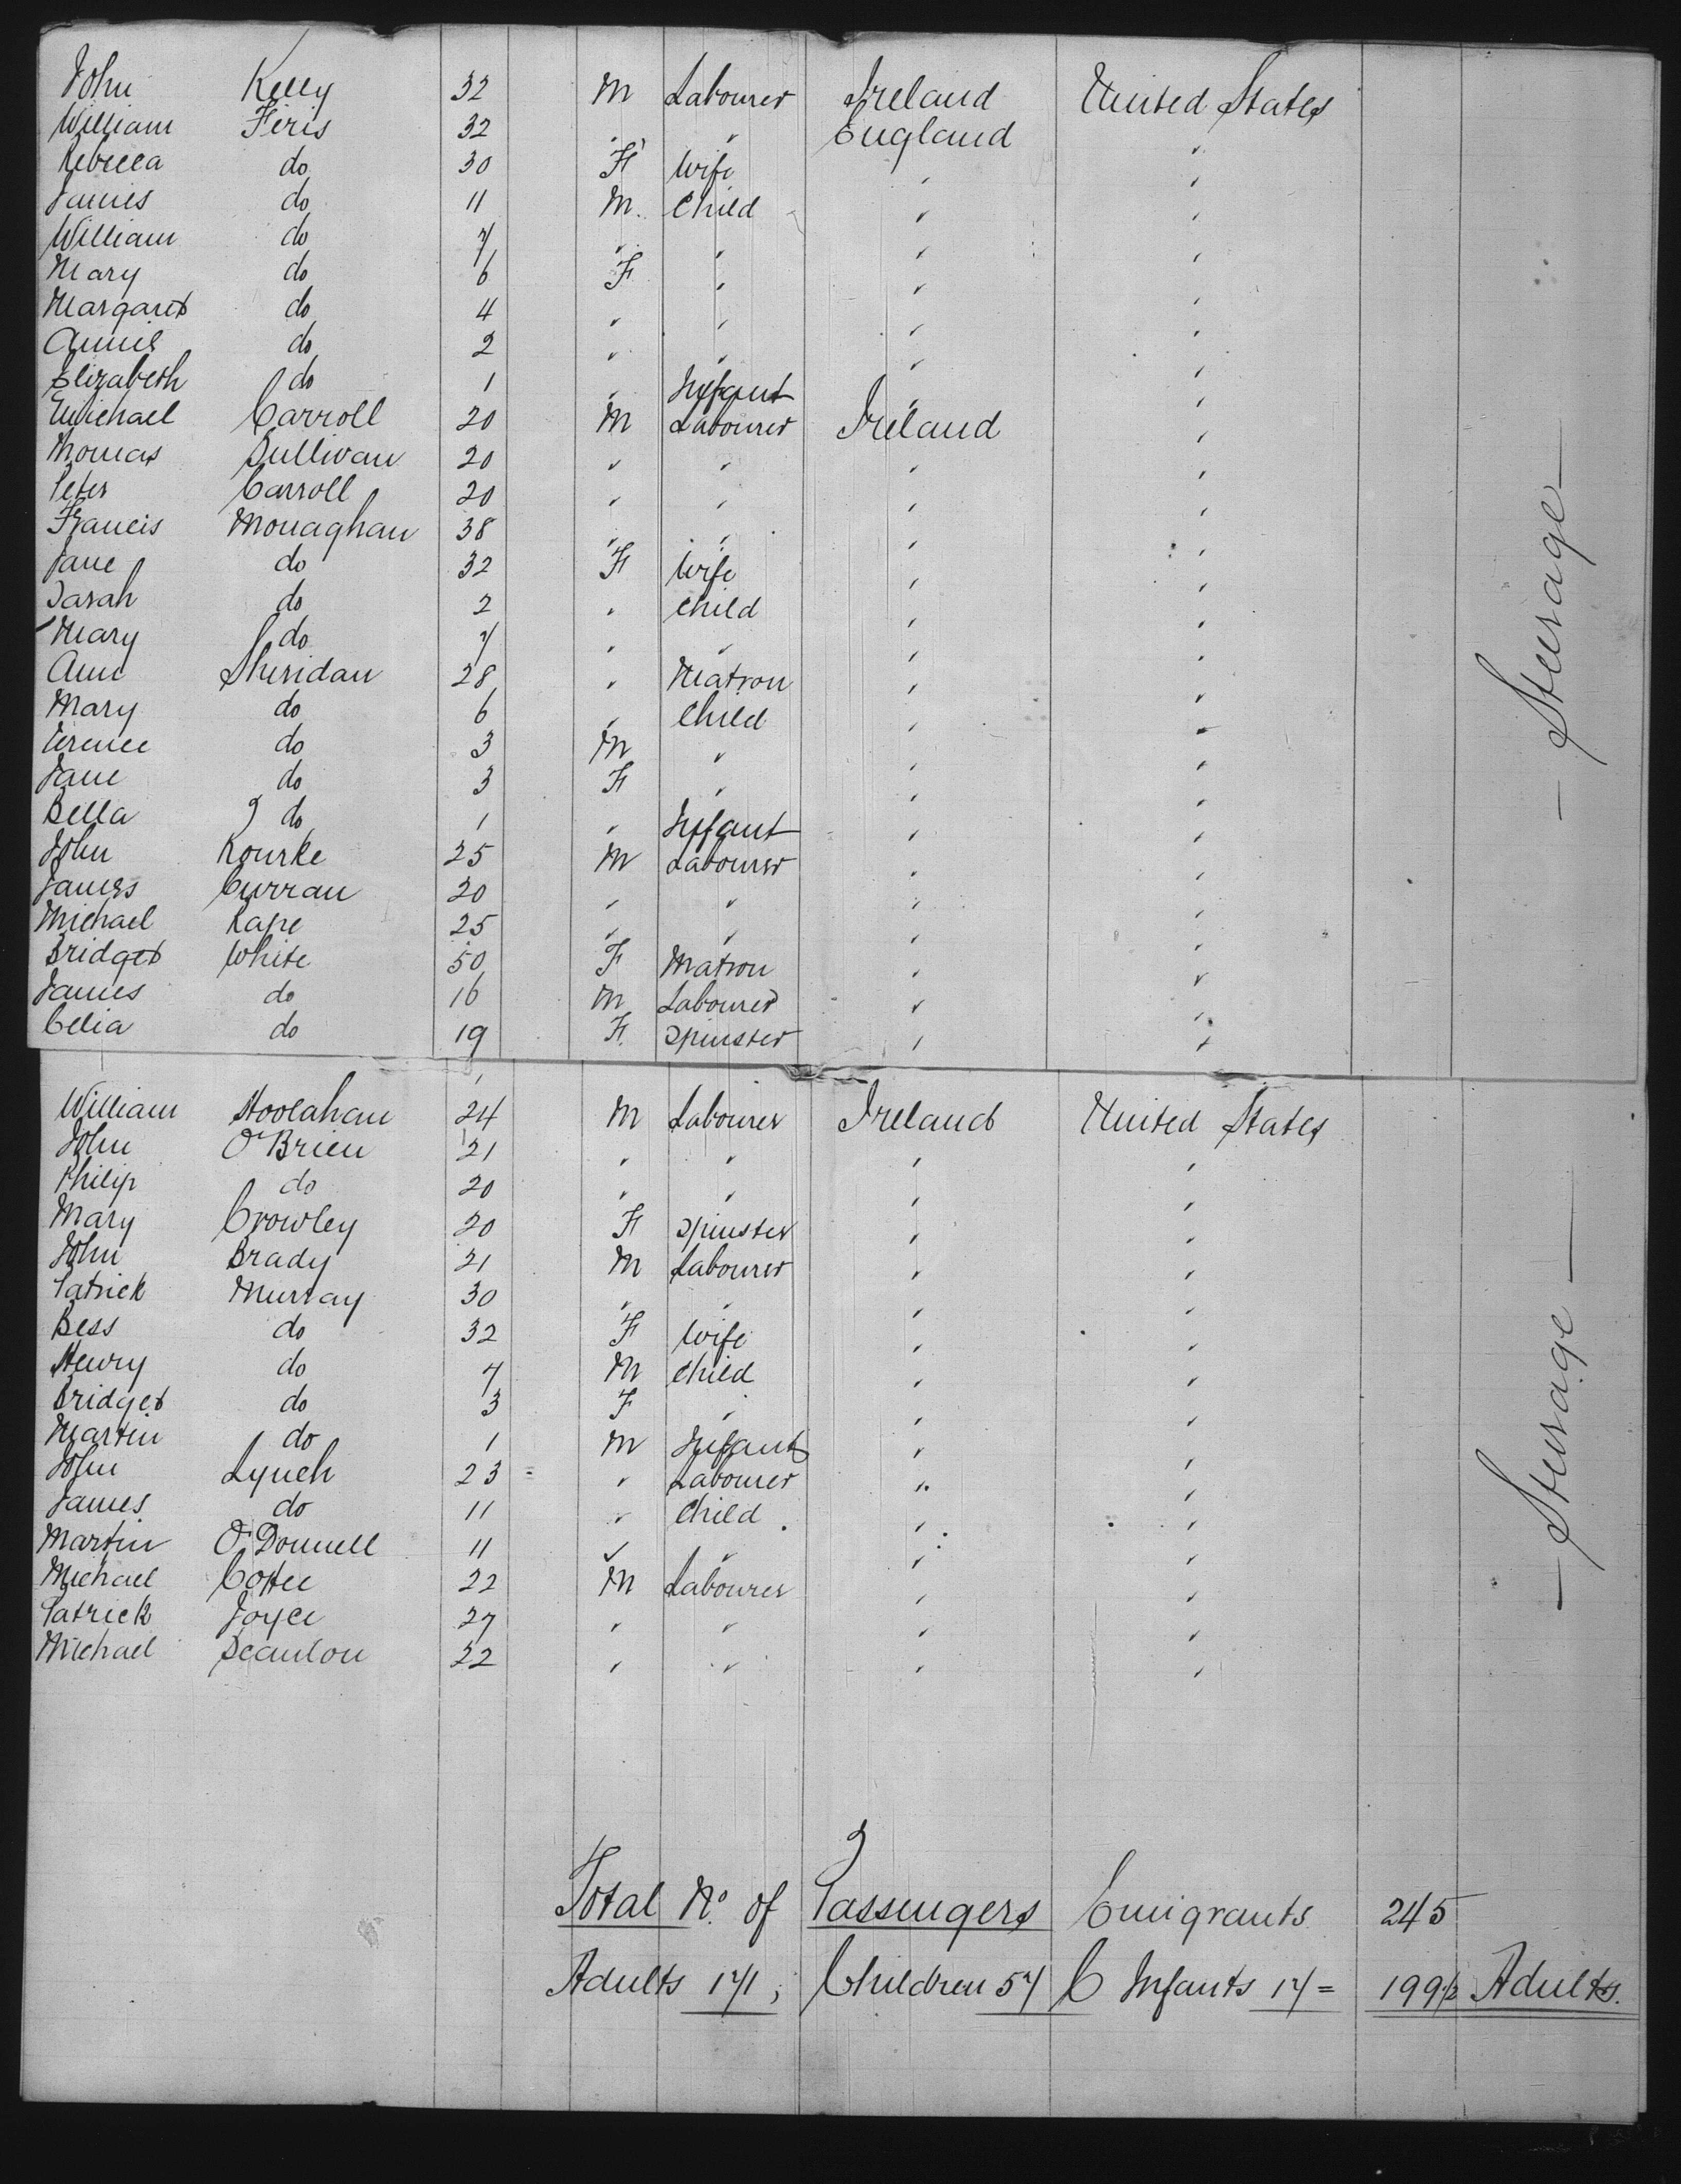 John Kelly 32 M Labourer Ireland United States
William Feris 32 " " England "
Rebecca do 30 F Wife " "
James do 11 M. Child " "
William do 7 " " " "
Mary do 6 F " " "
Margaret do 4 " " " "
Annie do 2 " " " "
Elizabeth do 1 " Infant " "
Michael Carroll 20 M Labourer Ireland "
Thomas Sullivan 20 " " " "
Peter Carroll 20 " " " "
Francis Monaghan 38 " " " "
Jane do 32 F Wife " "
Sarah do 2 " Child " "
Mary do 7 " " " "
Ann Sheridan 28 " Matron " "
Mary do 6 " Child " "
Terence do 3 M " " "
Jane do 3 F " " "
Bella do 1 " Infant " "
John Rourke 25 M Labourer " "
James Curran 20 " " " "
Michael Kape 25 " " " "
Bridget White 50 F Matron " "
James do 16 M Labourer " "
Celia do 19 F. Spinster " "
— Steerage —
William Hoolahan 24 M Labourer Ireland United States
John O'Brien 21 " " " "
Philip do 20 " " " "
Mary Crowley 20 F Spinster " "
John Brady 21 M Labourer " "
Patrick Murray 30 " " " "
Bess do 32 F Wife " "
Henry do 7 M Child " "
Bridget do 3 F " " "
Martin do 1 M Infant " "
John Lynch 23 " Labourer " "
James do 11 " Child " "
Martin O'Donnell 11 " " " "
Michael 22 M Labourer " "
Patrick Joyce 27 " " " "
Michael Scanlon 22 " " " "
— Steerage —
Total No. of Passengers Emigrants 245
Adults 171; Children 57 & Infants 17 = 199½ Adults.